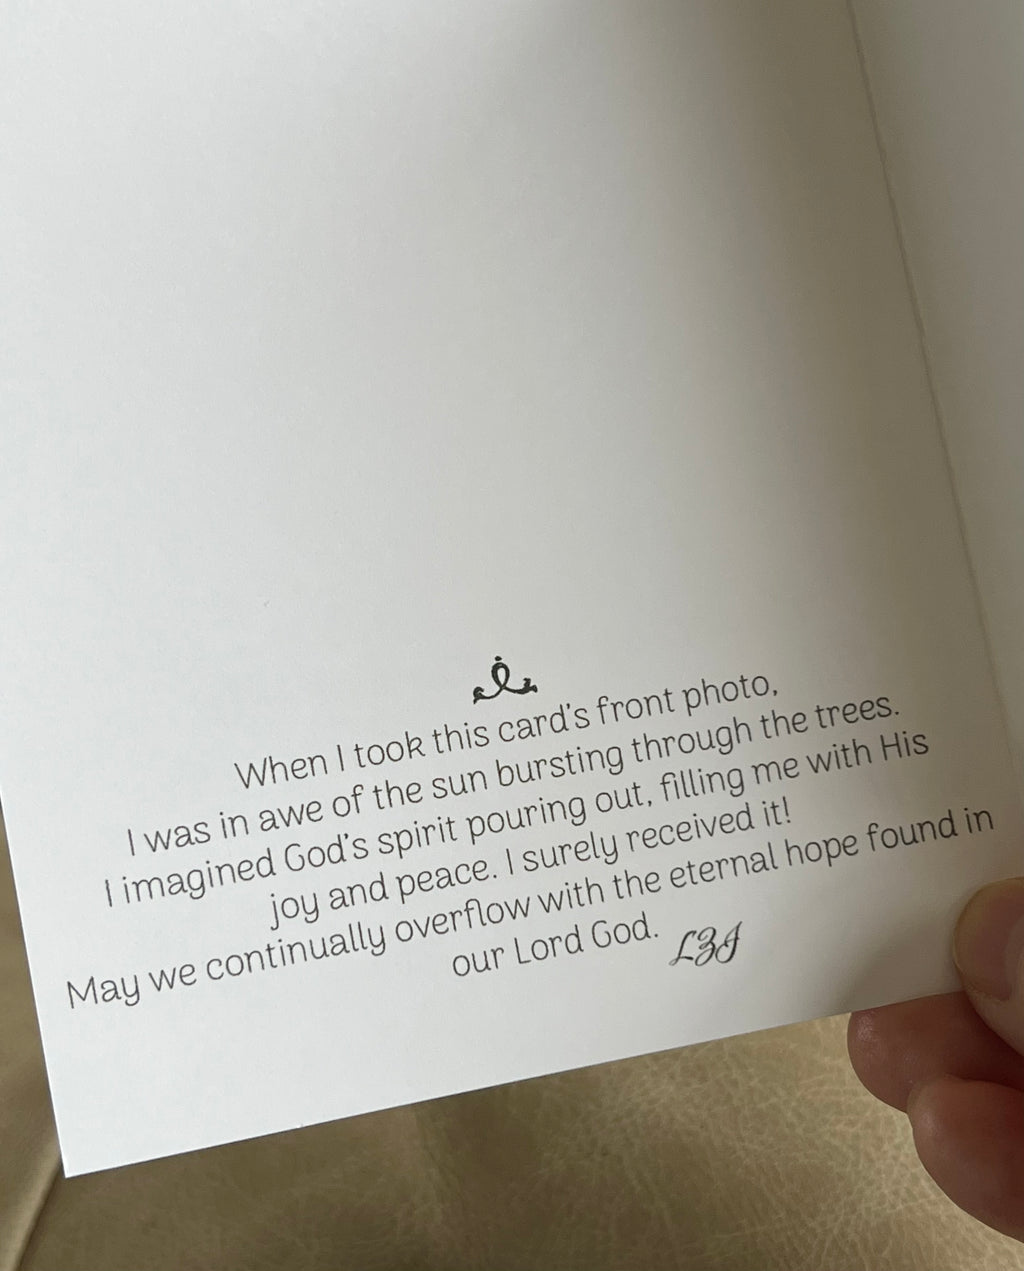 When I took this card's front photo,
I was in awe of the sun bursting through the trees.
I imagined God's spirit pouring out, filling me with His
joy and peace. I surely received it!
May we continually overflow with the eternal hope found in
our Lord God. LZJ